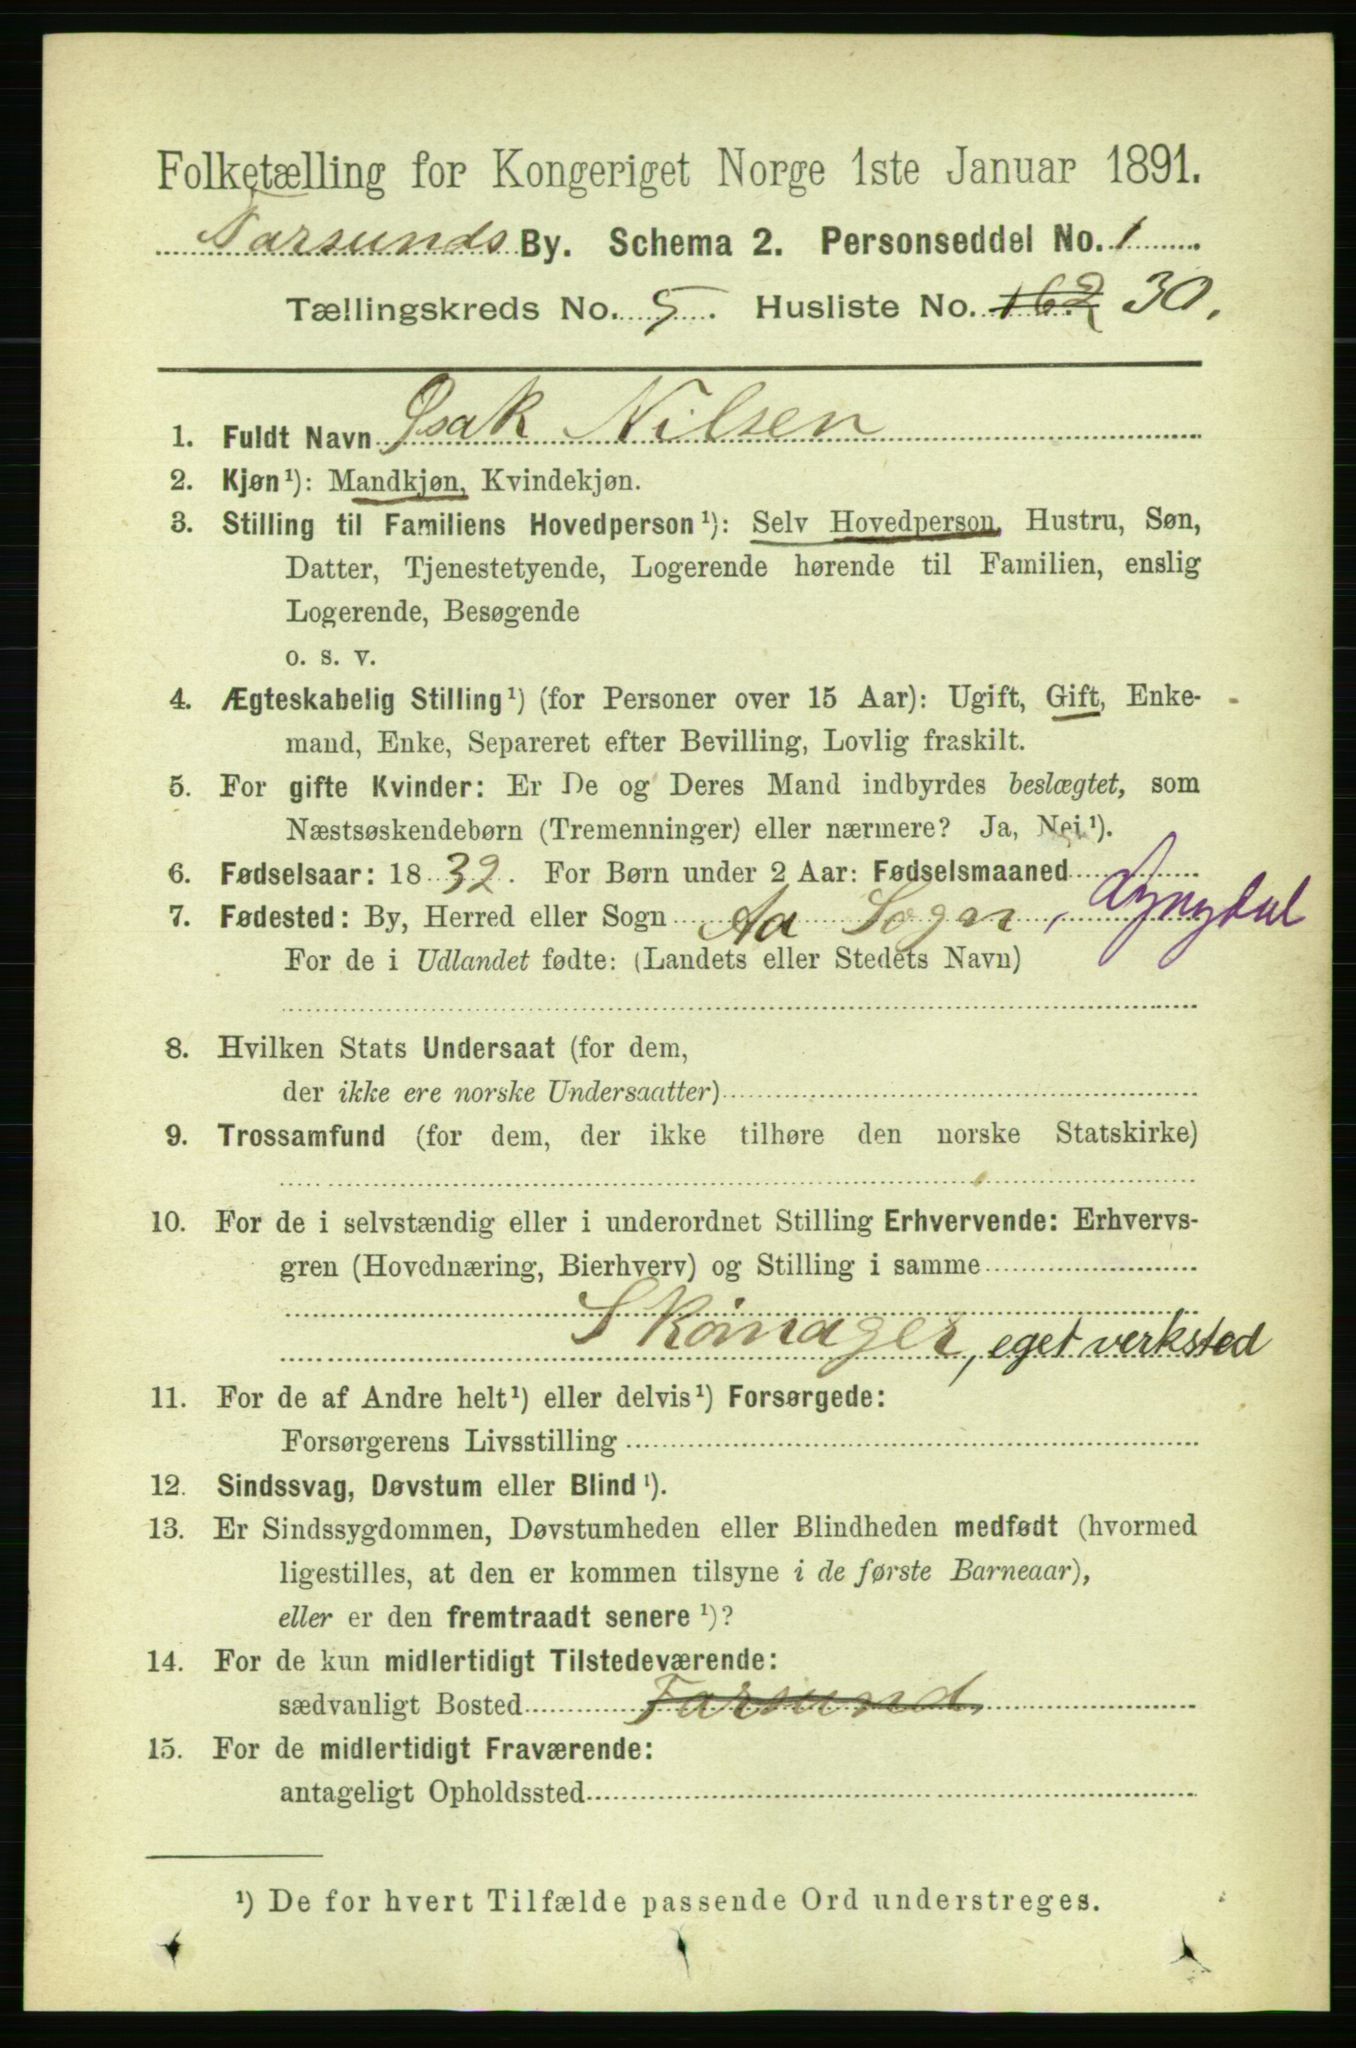 Folketælling for Kongeriget Norge 1ste Januar 1891.
Farsunds By. Schema 2. Personseddel No. 1
Tællingskreds No. 5. Husliste No. 162 30.
1. Fuldt Navn Isak Nilsen
2. Kjøn¹): Mandkjøn, Kvindekjøn.
3. Stilling til Familiens Hovedperson¹): Selv Hovedperson, Hustru, Søn,
Datter, Tjenestetyende, Logerende hørende til Familien, enslig
Logerende, Besøgende
o. s. v.
4. Ægteskabelig Stilling¹) (for Personer over 15 Aar): Ugift, Gift, Enke-
mand, Enke, Separeret efter Bevilling, Lovlig fraskilt.
5. For gifte Kvinder: Er De og Deres Mand indbyrdes beslægtet, som
Næstsøskendebørn (Tremenninger) eller nærmere? Ja, Nei¹).
6. Fødselsaar: 1832. For Børn under 2 Aar: Fødselsmaaned
7. Fødested: By, Herred eller Sogn Aa Sogn, Lyngdal
For de i Udlandet fødte: (Landets eller Stedets Navn)
8. Hvilken Stats Undersaat (for dem,
der ikke ere norske Undersaatter)
9. Trossamfund (for dem, der ikke tilhøre den norske Statskirke)
10. For de i selvstændig eller i underordnet Stilling Erhvervende: Erhvervs-
gren (Hovednæring, Bierhverv) og Stilling i samme
Skomager, eget verksted
11. For de af Andre helt¹) eller delvis¹) Forsørgede:
Forsørgerens Livsstilling
12. Sindssvag, Døvstum eller Blind¹).
13. Er Sindssygdommen, Døvstumheden eller Blindheden medfødt (hvormed
ligestilles, at den er kommen tilsyne i de første Barneaar),
eller er den fremtraadt senere¹)?
14. For de kun midlertidigt Tilstedeværende:
sædvanligt Bosted Farsund
15. For de midlertidigt Fraværende:
antageligt Opholdssted
¹) De for hvert Tilfælde passende Ord understreges.